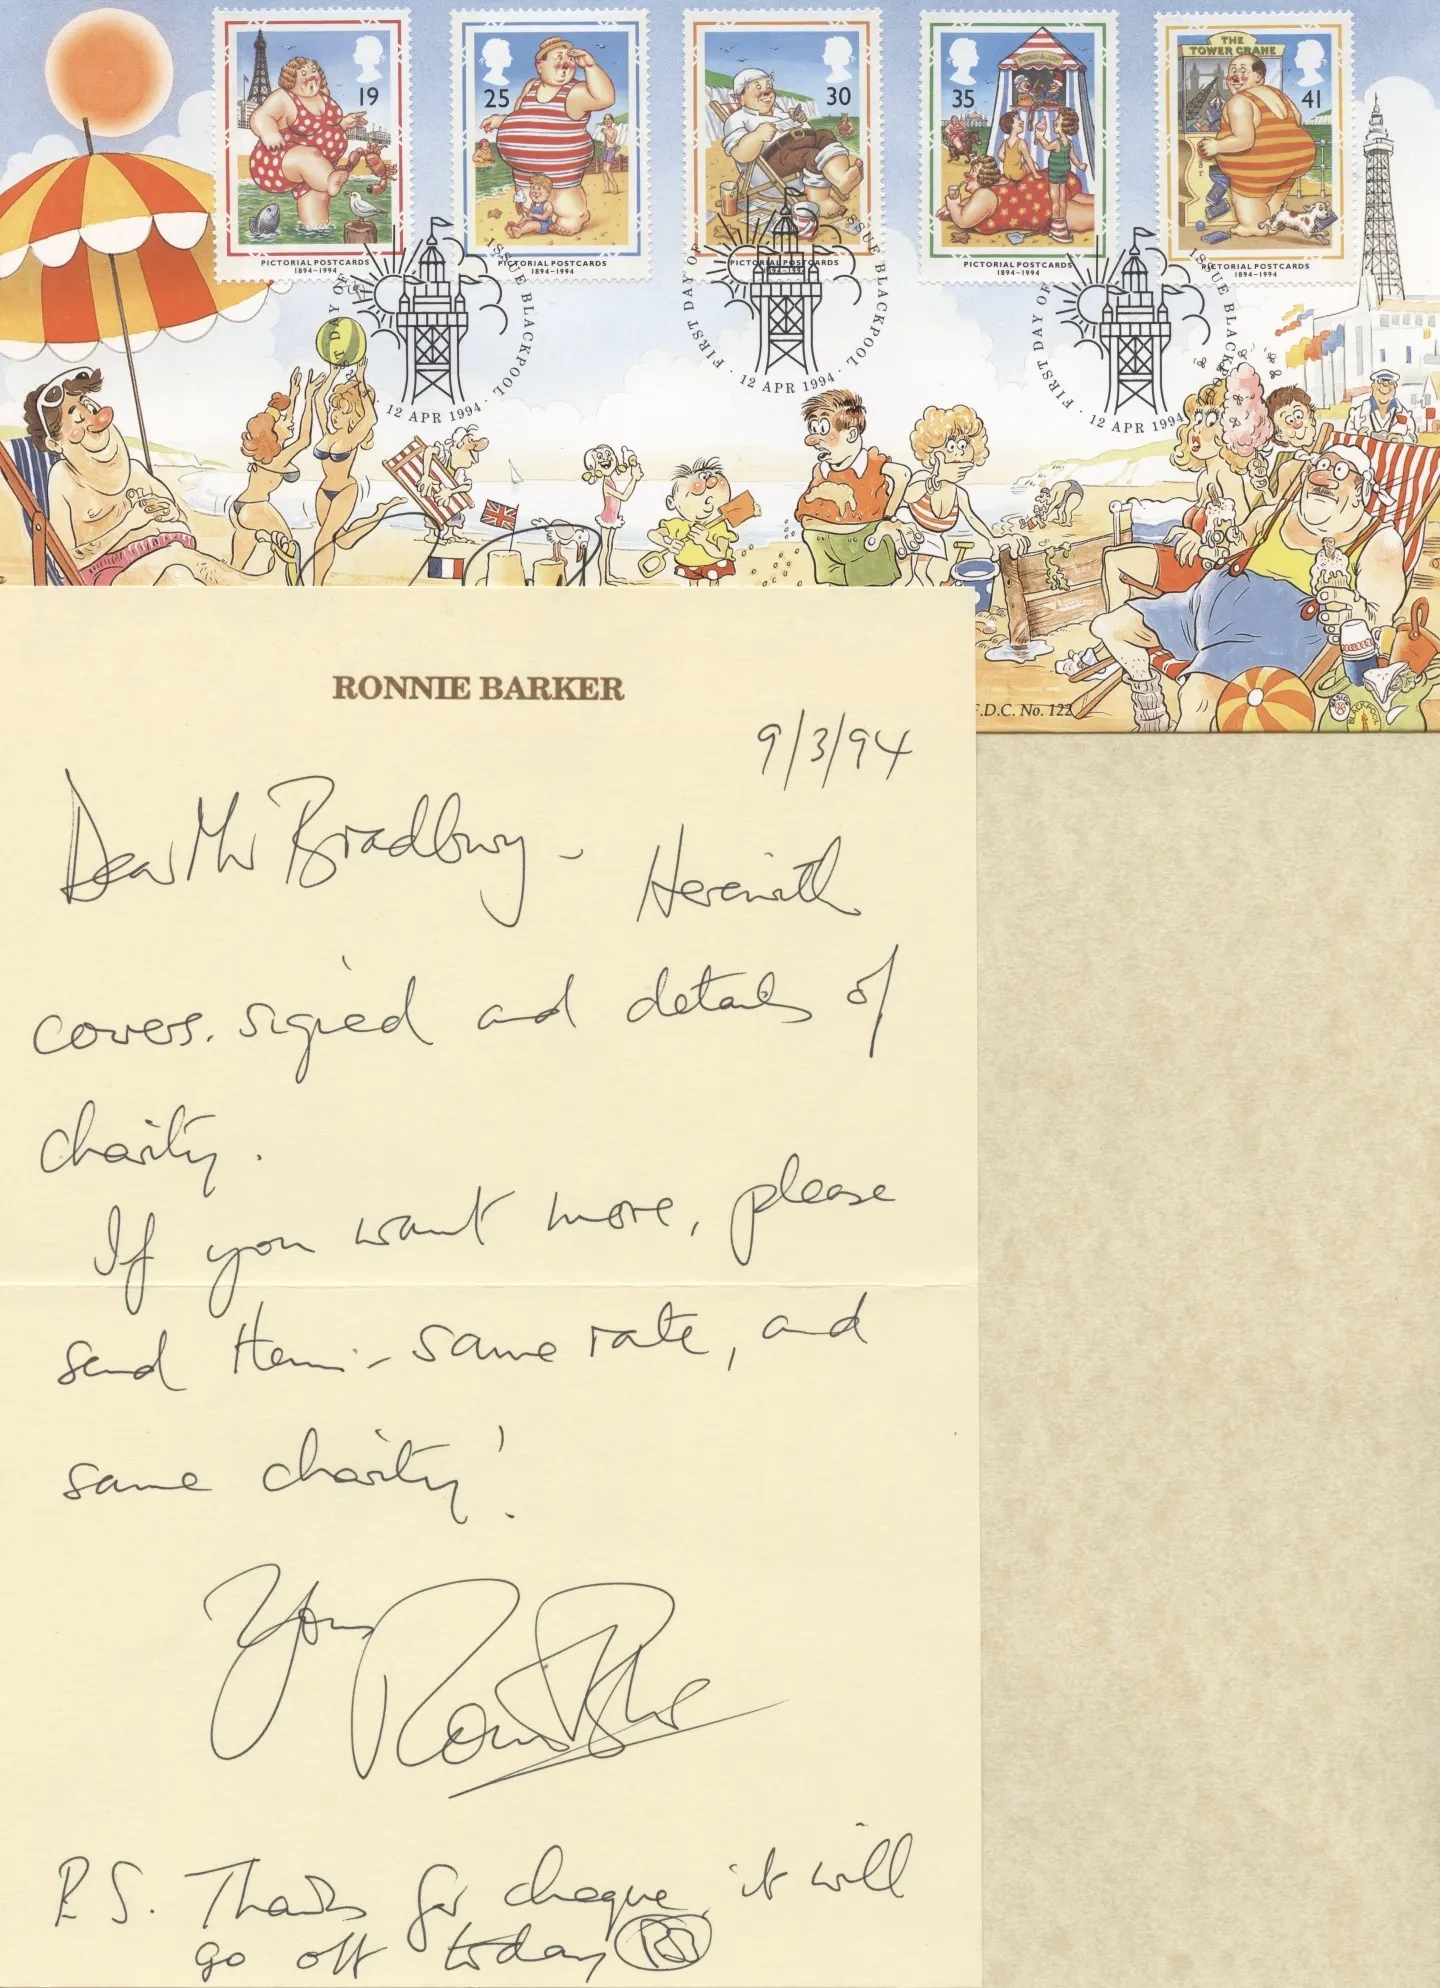 19
25
30
35
41
THE
TOWER CRANE
PUNCH & JUDY
PICTORIAL POSTCARDS
1894-1994
PICTORIAL POSTCARDS
1894-1994
PICTORIAL POSTCARDS
1894-1994
PICTORIAL POSTCARDS
1894-1994
PICTORIAL POSTCARDS
1894-1994
FIRST DAY OF ISSUE BLACKPOOL · 12 APR 1994 ·
FIRST DAY OF ISSUE BLACKPOOL · 12 APR 1994 ·
FIRST DAY OF ISSUE BLACKPOOL · 12 APR 1994 ·
F.D.C. No. 122
BLACKPOOL
RONNIE BARKER
9/3/94
Dear Mr Bradbury - Herewith
covers. signed and details of
charity.
If you want more, please
send them - same rate, and
same charity!
Yours Ronnie Barker
P.S. Thanks for cheque, it will
go off today RB